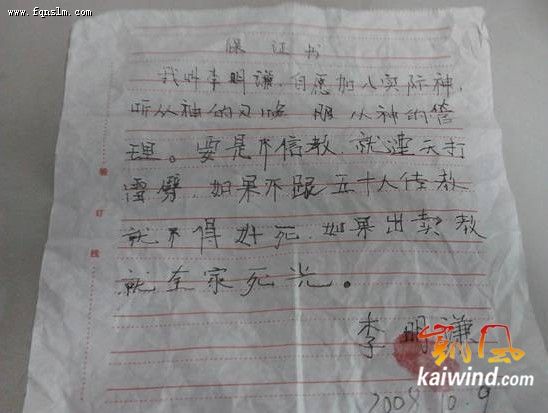 www.fqnslm.com
保证书
我叫李明谦,自愿加入实际神,
听从神的 服从神的管
理。要是不信教 就連天打
雷劈,如果不跟五十人传教
就不得好死,如果出卖教
就全家死光。
李明谦
凯风
kaiwind.com
装订线